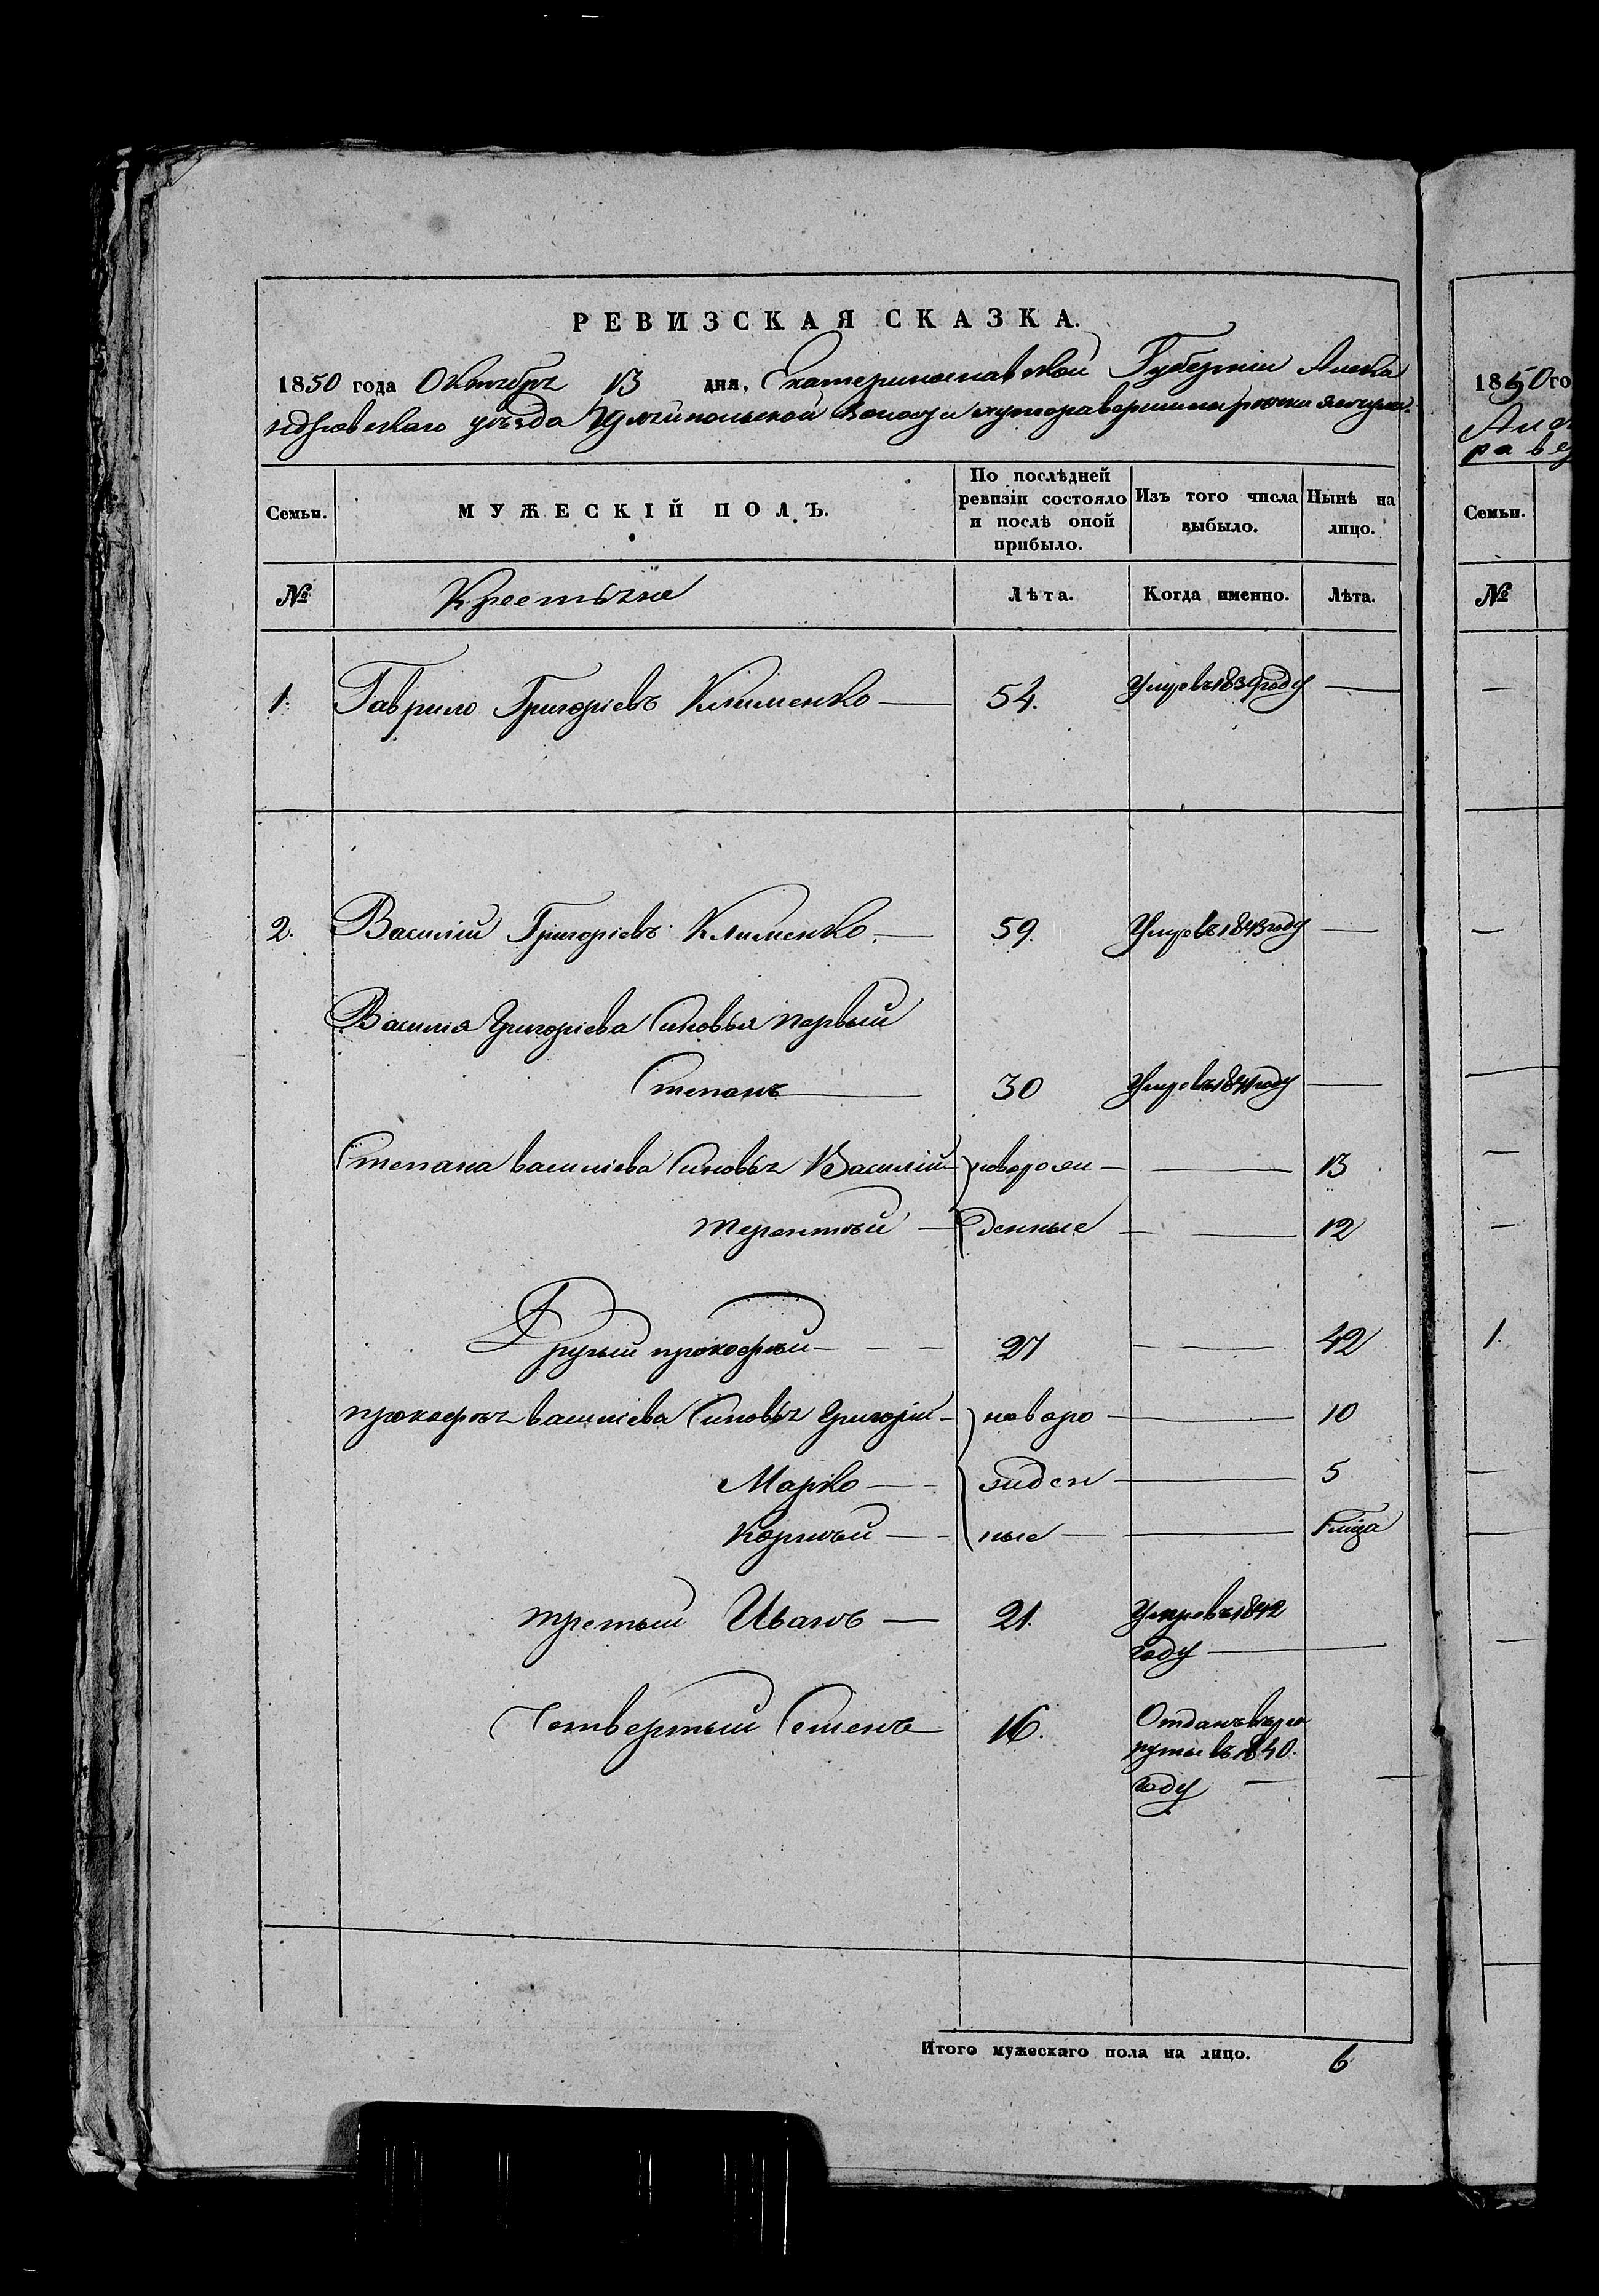 РЕВИЗСКАЯ СКАЗКА.
1850 года Октября 13 дня, Екатеринославской Губерніи Алекса
ндровскаго уѣзда волости хутора вершины рѣчки
Семьи.
МУЖЕСКІЙ ПОЛЪ.
По послѣдней ревизіи состояло и послѣ оной прибыло.
Изъ того числа выбыло.
Нынѣ на лицо.
№ Крестьяне Лѣта. Когда именно. Лѣта.
1. Гаврило Григоріевъ Клименко — 54. Умеръ въ 1839 году —
2. Василій Григоріевъ Клименко. — 59. Умеръ въ 1843 году —
Василія Григоріева Синовья первый
Степанъ — 30 Умеръ въ 1841 году —
Степана василіева Синовья Василій новорож — — 13
терентий — денные — — 12
Другий прокофий — — — 27 — — 42
прокофья василіева Синовья Григорій — новоро — 10
Марко — — жден — 5
Корний — — ные — — 1 года
третий Иванъ — 21. Умеръ въ 1842
году —
Четвертый Семенъ 16. Отданъ въ ре
круты въ 1840.
году —
Итого мужескаго пола на лицо. 6
1850 го
Семьи.
№
1.